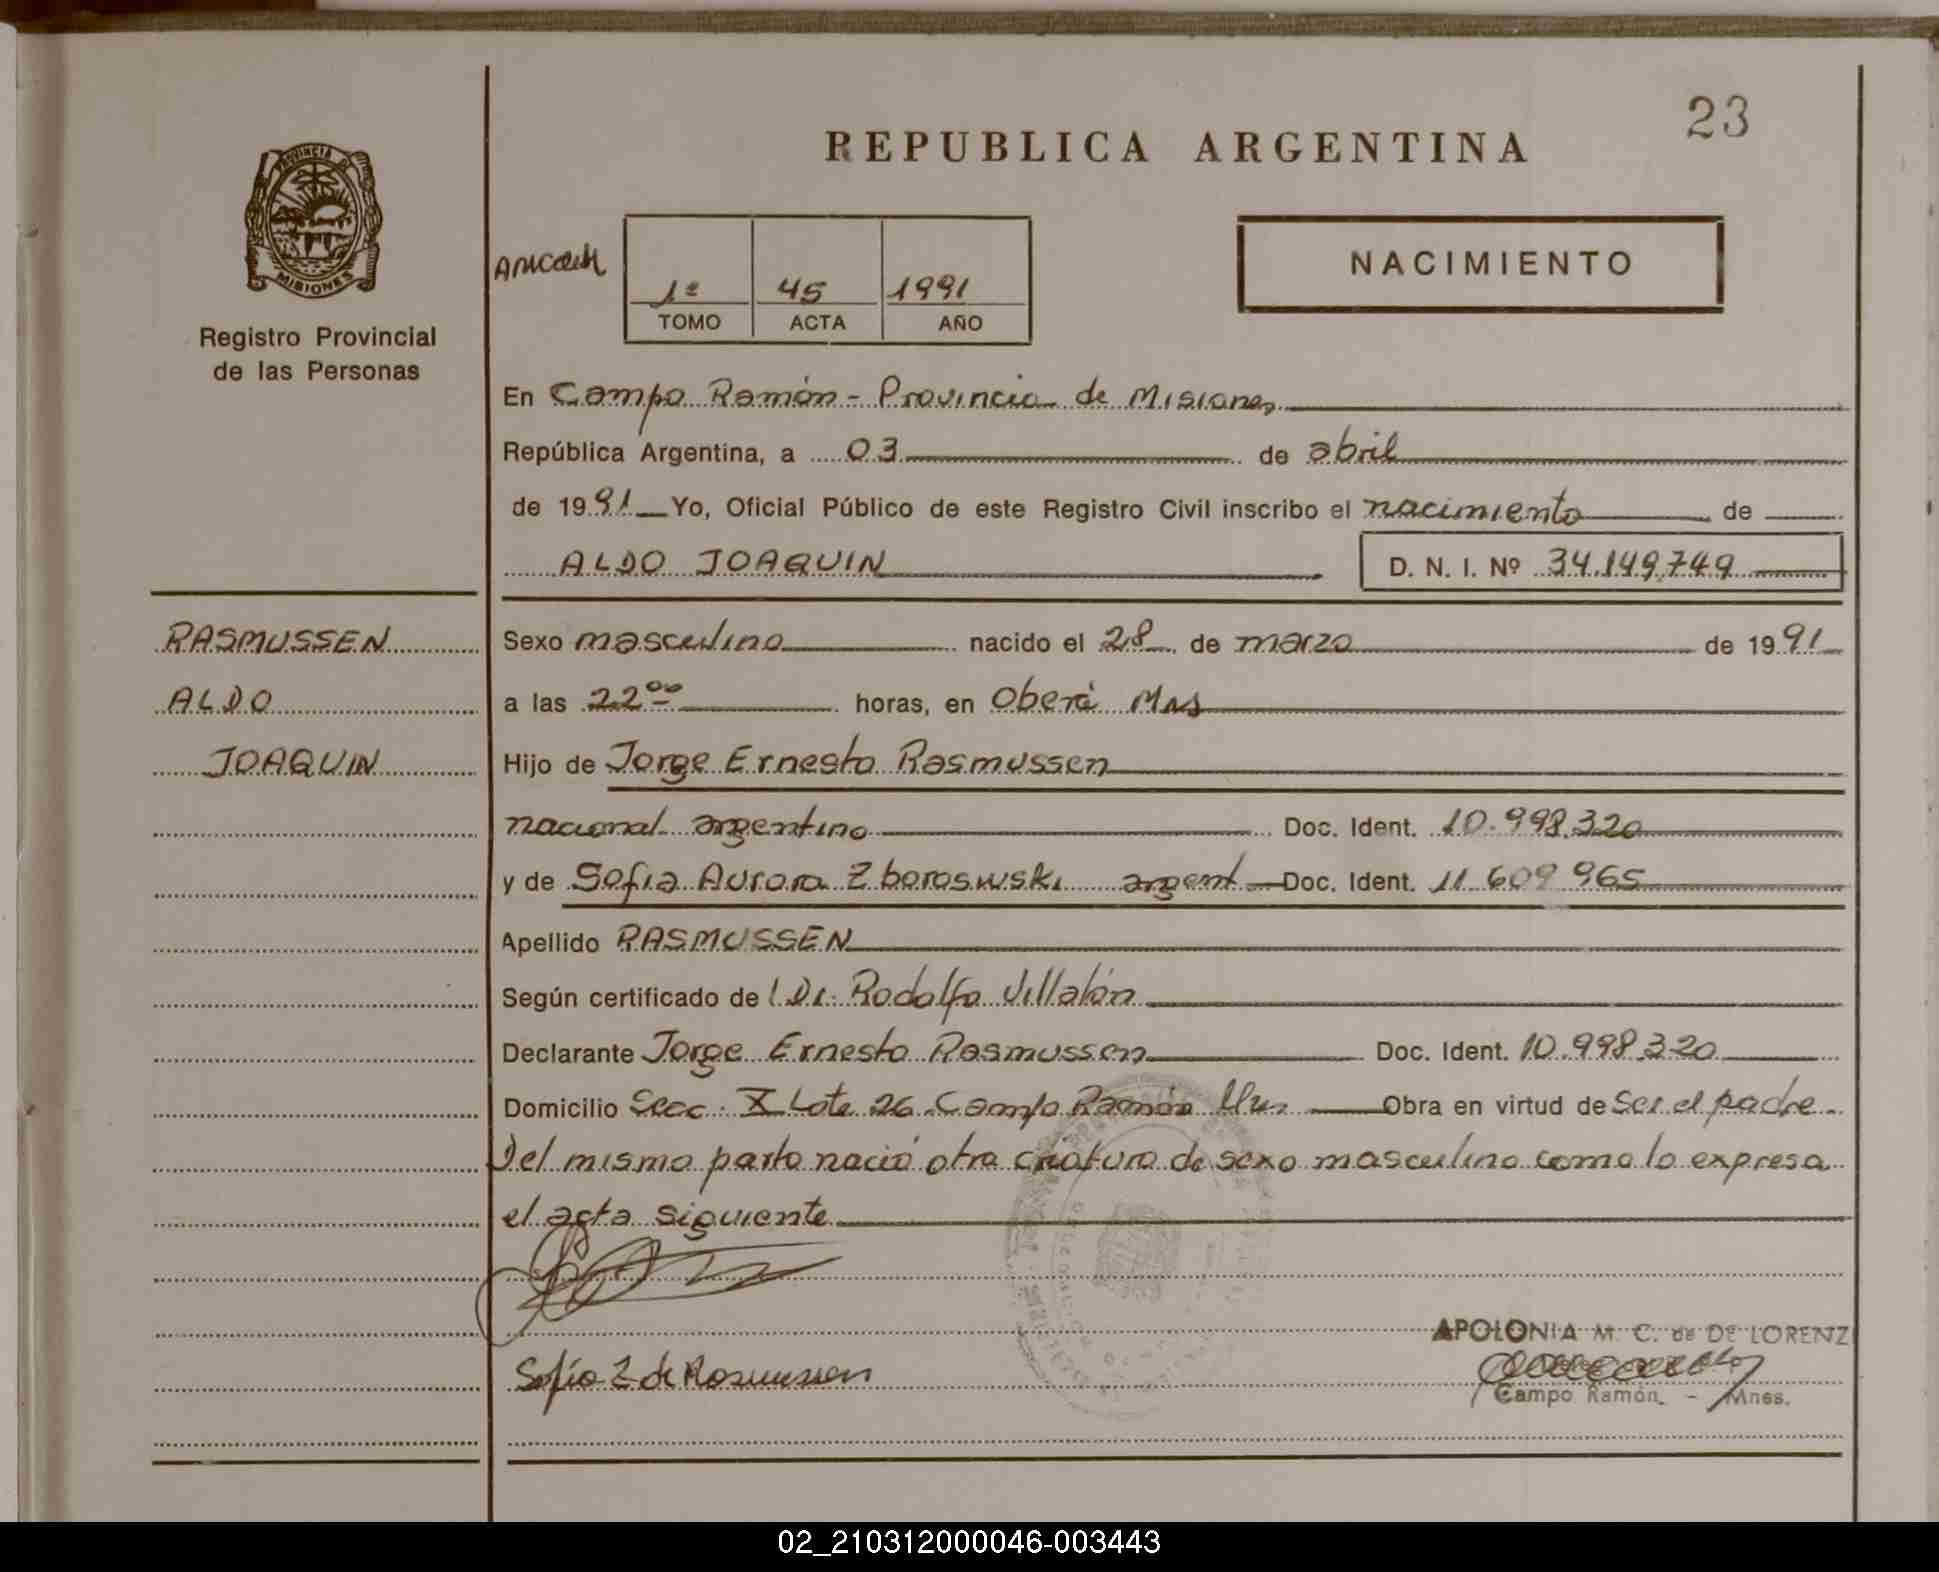 23
REPUBLICA ARGENTINA
PROVINCIA DE
MISIONES
Registro Provincial
de las Personas
1º 45 1991
TOMO ACTA AÑO
NACIMIENTO
En Campo Ramón - Provincia de Misiones
República Argentina, a 03 de abril
de 1991 Yo, Oficial Público de este Registro Civil inscribo el nacimiento de
ALDO JOAQUIN D. N. I. Nº 34.149.749
RASMUSSEN
ALDO
JOAQUIN
Sexo masculino nacido el 28 de marzo de 1991
a las 22 00 horas, en Oberá Mns
Hijo de Jorge Ernesto Rasmussen
nacional argentino Doc. Ident. 10.998.320
y de Sofia Aurora Zboroswski argent Doc. Ident. 11 609 965
Apellido RASMUSSEN
Según certificado de Dr. Rodolfo Villalón
Declarante Jorge Ernesto Rasmussen Doc. Ident. 10.998.320
Domicilio Secc. X Lote 26 Campo Ramón Obra en virtud de Ser el padre
Del mismo parto nació otra criatura de sexo masculino como lo expresa
el acta siguiente
Sofía Z de Rasmussen
APOLONIA M. C. de DE LORENZ
Campo Ramón - Mnes.
02_210312000046-003443